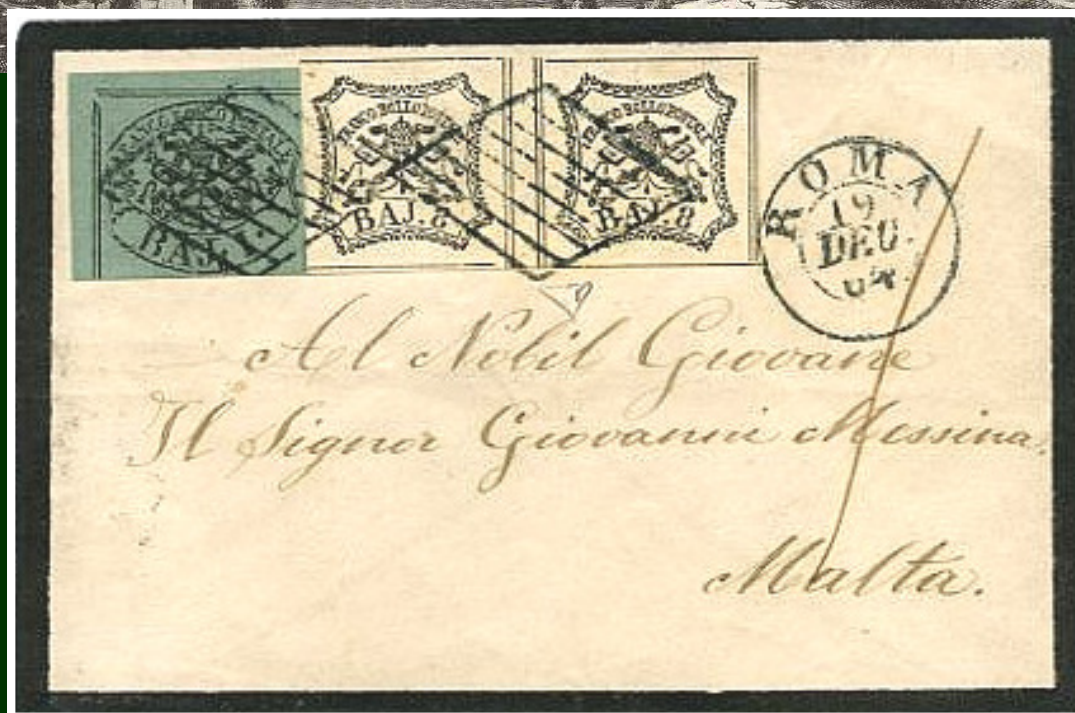 FRANCO BOLLO POSTALE
BAJ. 1.
FRANCO BOLLO POSTALE
BAJ. 8
FRANCO BOLLO POSTALE
BAJ. 8
ROMA
19
DEC
64
Al Nobil Giovane
Il Signor Giovanni Messina.
Malta.